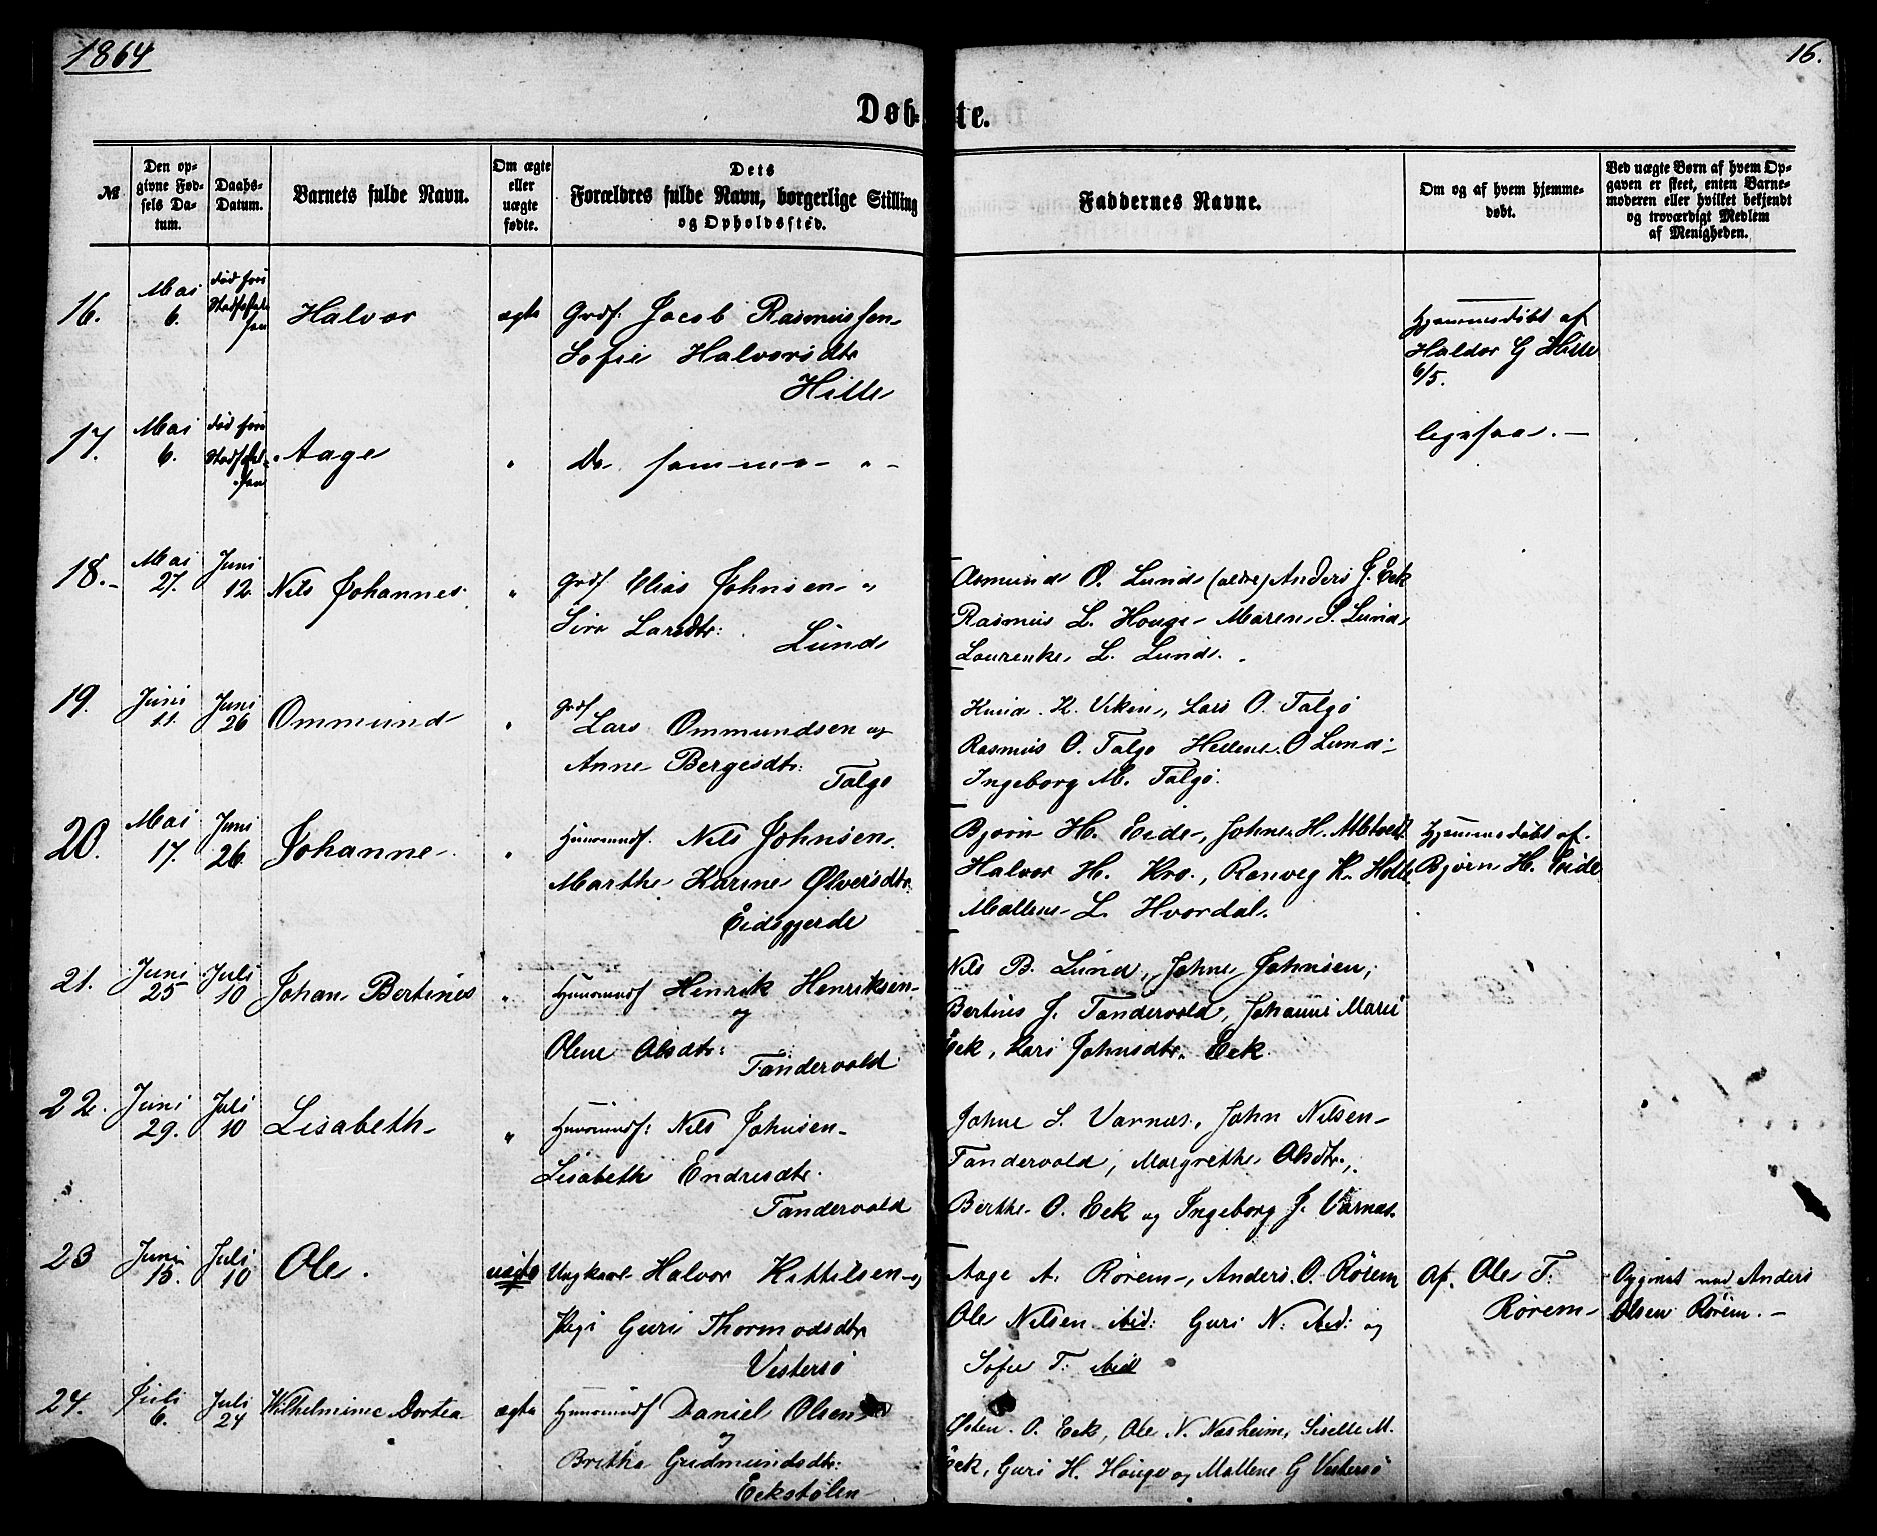 1864
16.
Døbte.
№
Den opgivne Fødsels Datum.
Daabs-Datum.
Barnets fulde Navn.
Om ægte eller uægte fødte.
Dets Forældres fulde Navn, borgerlige Stilling og Opholdssted.
Faddernes Navne.
Om og af hvem hjemmedøbt.
Ved uægte Børn af hvem Opgaven er skeet, enten Barnemoderen eller hvilket bekjendt og troværdigt Medlem af Menigheden.
16. Mai 6. død før Halvor ægte Grdf. Jacob Rasmussen
Sofie Halvorsdtr
Hille
Hjemmedøbt af
Haldor G Hille
6/5.
17. Mai 6. død før Aage " De samme
ligesaa. —
18. Mai 27. Juni 12. Nils Johannes " Grdf Elias Johnsen
Siri Larsdtr: Lunde
Asmund O. Lunde (ældre) Anders J. Eek
Rasmus L. Houge Maren S. Lunde
Laurenke L. Lunde.
19. Juni 11. Juni 26 Ommund " Grdf Lars Ommundsen og
Anne Bergesdtr: Talge
Knud K. Viken, Lars O. Talgø
Rasmus O. Talge Hellene O Lund
Ingeborg M. Talgø.
20. Mai 17. Juni 26. Johanne " Huusmndf. Nils Johnsen
Marthe Karine Ølversdtr.
Eidsgjerde
Bjørn H. Eide, Johne H. Mletveit
Halvor H. Kro., Ranveg K. Hølle
Mallene L. Hvordal.
Hjemmedøbt af.
Bjørn H. Eide
21. Juni 25 Juli 10 Johan Bertines " Huusmndf Henrik Henriksen
og
Olene Olsdtr: Tandervold
Nils B. Lund, Johne Johnsen,
Bertines J. Tandervold, Johanne Marie
Eek, Kari Johnsdtr. Eek.
22. Juni 29. Juli 10 Lisabeth " Huusmndf: Nils Johnsen
Lisabeth Endresdtr.
Tandervold
Johne S. Varnæs, John Nilsen
Tandervold, Margrethe Olsdtr.,
Berthe O. Eek og Ingeborg J. Varnæs.
23 Juni 15. Juli 10 Ole. uægte Ungkarl Halvor Kittilsen og
Pige Guri Thormodsdtr
Vestersø
Aage A. Rørem, Anders O. Rørem
Ole Nilsen ibid: Guri N: ibid: og
Sofie T: ibid
Af. Ole T:
Rørem
Opgivet ved Anders
Olsen Rørem. —
24. Juli 6. Juli 24 Wilhelmine Dortea ægte Huusmndf Daniel Olsen
og
Brithe Gudmundsdtr:
Eekstølen
Østen O. Eek, Ole N. Næsheim, Siselle M.
Eek, Guri H. Houge og Mallene G Vestersø